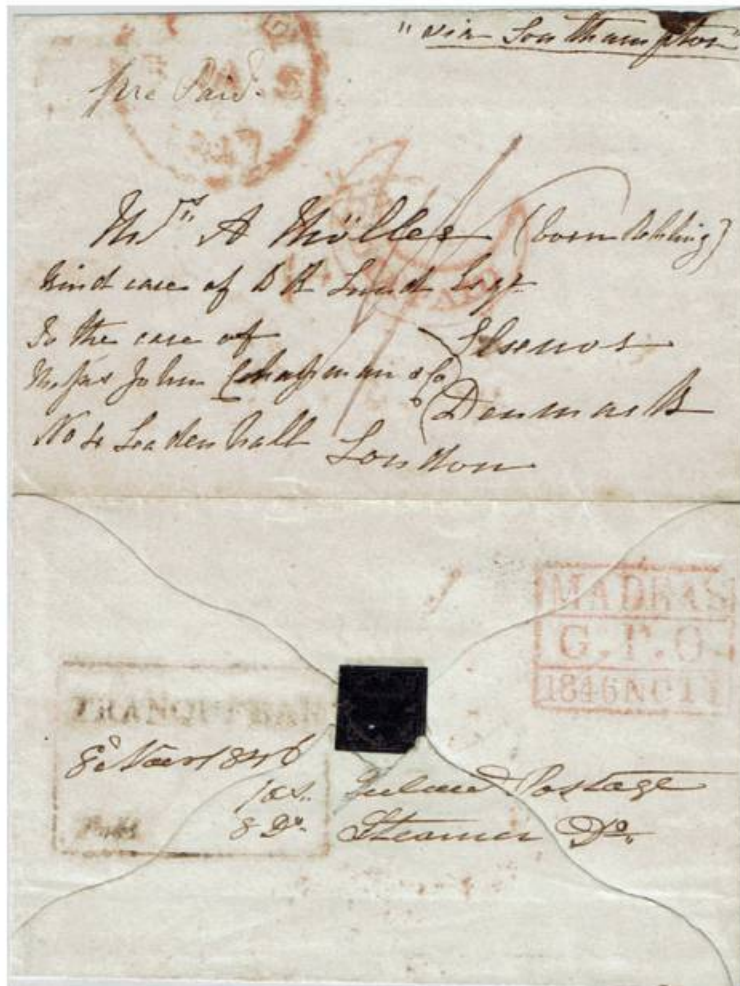 "via Southampton"
pre Paid.
47
Mrs A Möller (born
kind care of D R Lund Esqr
To the care of Elsenor
Messrs John Chapman & Co Denmark
No 4 Leadenhall London
PAID
MADRAS
G.P.O
1846 NO 11
TRANQUEBAR
8 Novr 1846
1 as. Inland Postage
8 Do. Steamer Do.
Paid